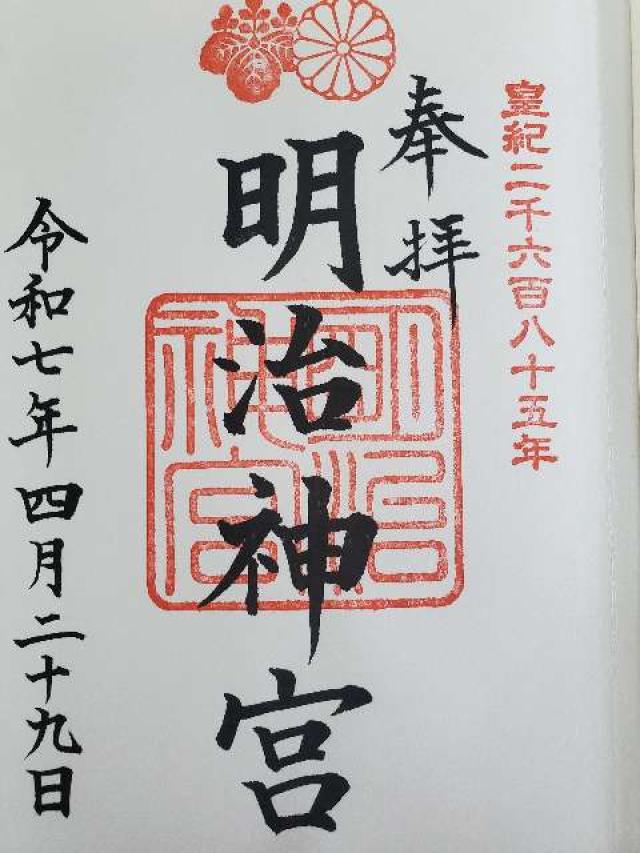 皇紀二千六百八十五年
奉拝
明治神宮
明治神宮
令和七年四月二十九日